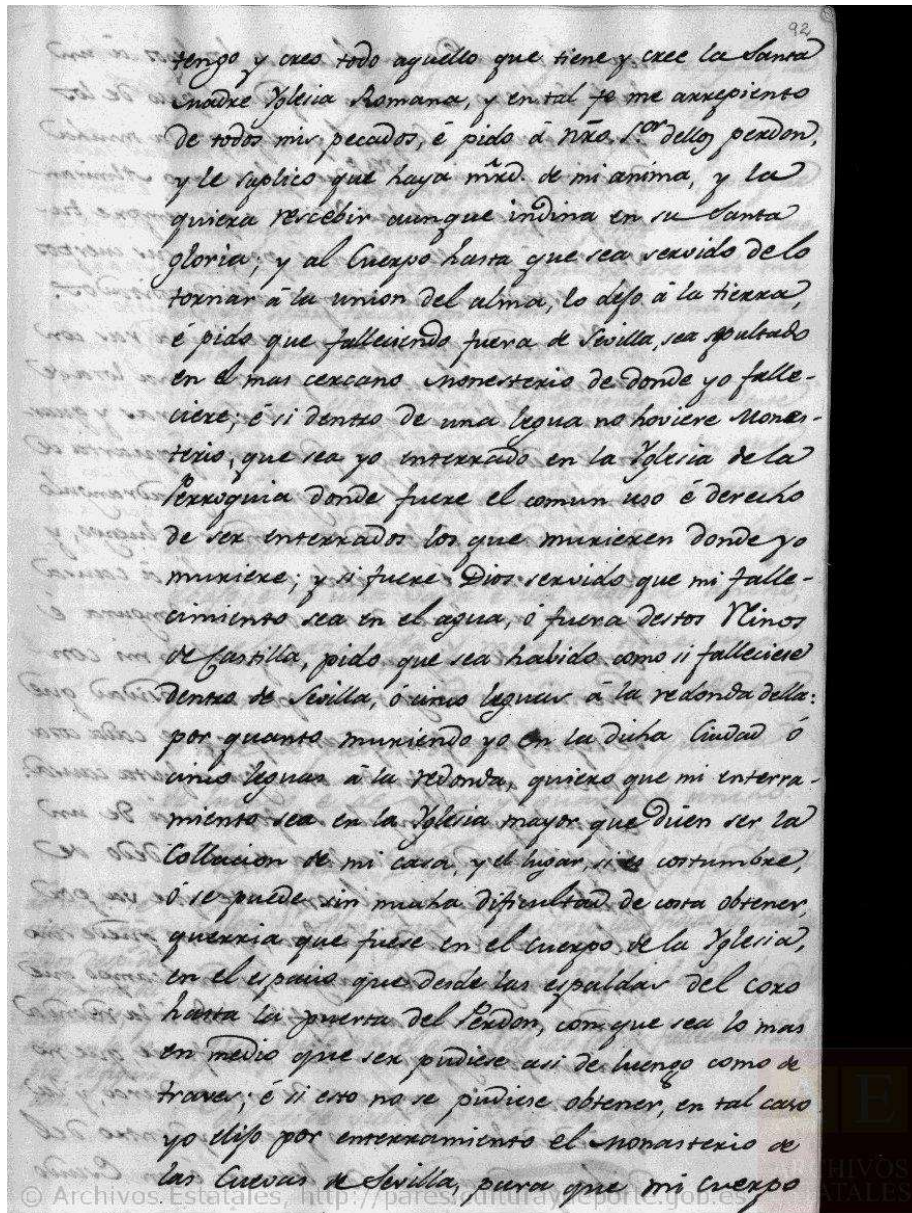 92
tengo y creo todo aquello que tiene y cree la Santa
Madre Yglesia Romana, y en tal fe me arrepiento
de todos mis pecados, é pido á nrõ. S.or dellos perdon,
y le suplico que haya mrd. de mi anima, y la
quiera rescebir aunque indina en su Santa
gloria; y al Cuerpo hasta que sea servido de lo
tornar á la union del alma, lo dejo á la tierra,
é pido que falleciendo fuera de Sevilla, sea spultado
en el mas cercano Monesterio de donde yo falle-
ciere; é si dentro de una legua no hoviere Mones-
terio, que sea yo enterrado en la Yglesia de la
Perroquia donde fuere el comun uso é derecho
de ser enterrados los que murieren donde yo
muriere; y si fuere Dios servido que mi falle-
cimiento sea en el agua, ó fuera destos Reinos
de Castilla, pido que sea habido como si falleciese
dentro de Sevilla, ó cinco leguas á la redonda della:
por quanto muriendo yo en la dicha Ciudad ó
cinco leguas á la redonda, quiero que mi enterra-
miento sea en la Yglesia mayor que dicen ser la
Collacion de mi casa, y el lugar, si es costumbre,
ó se puede sin mucha dificultad de costa obtener,
querria que fuese en el cuerpo de la Yglesia,
en el espacio que desde las espaldas del coro
hasta la puerta del Perdon, con que sea lo mas
en medio que ser pudiese asi de luengo como de
traves; é si esto no se pudiese obtener, en tal caso
yo elijo por enterramiento el Monasterio de
las Cuevas de Sevilla, para que mi cuerpo
© Archivos Estatales, http://pares.culturaydeporte.gob.es
ARCHIVOS
ESTATALES